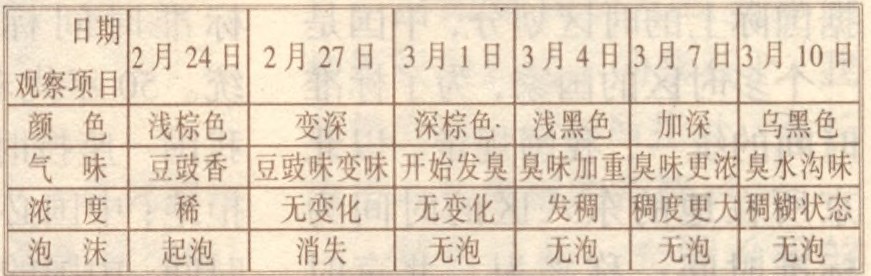 日期
观察项目 2月24日 2月27日 3月1日 3月4日 3月7日 3月10日
颜色 浅棕色 变深 深棕色· 浅黑色 加深 乌黑色
气味 豆豉香 豆豉味变味 开始发臭 臭味加重 臭味更浓 臭水沟味
浓度 稀 无变化 无变化 发稠 稠度更大 稠糊状态
泡沫 起泡 消失 无泡 无泡 无泡 无泡